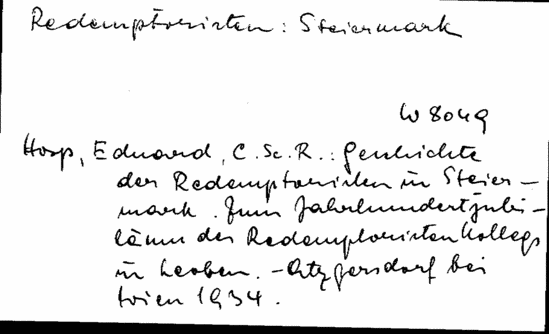 Redemptoristen: Steiermark
W 8049
Hosp, Eduard, C.Ss.R.: Geschichte
der Redemptoristen in Steier-
mark. Zum Jahrhundertjubi-
läum des Redemptoristenkollegs
in Leoben. - Atzgersdorf bei
Wien 1934.